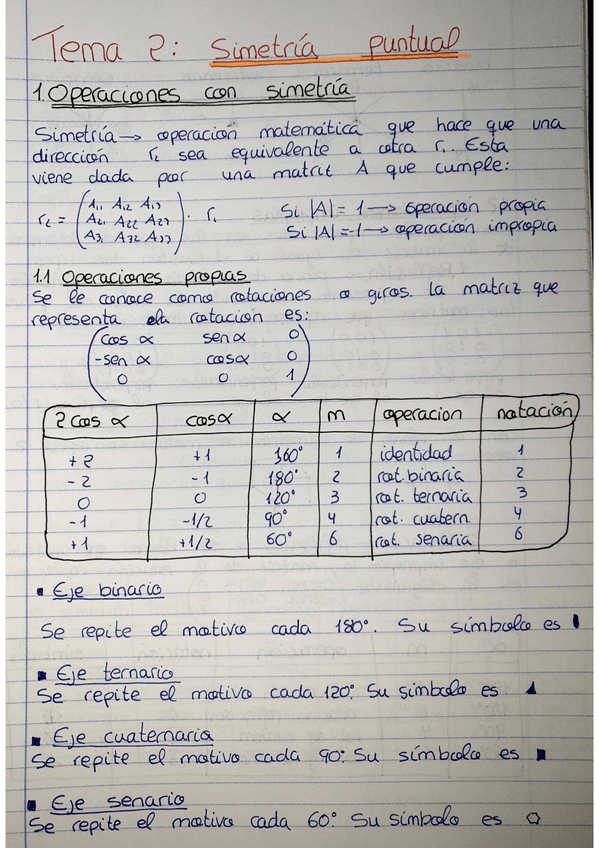 Tema 2: Simetría puntual
1. Operaciones con simetría
Simetría → operación matemática que hace que una
dirección r₂ sea equivalente a otra r₁. Esta
viene dada por una matriz A que cumple:
r₂ = (A₁₁ A₁₂ A₁₃ · r₁ Si |A| = 1 → operacion propia
A₂₁ A₂₂ A₂₃ Si |A| = -1 → operación impropia
A₃₁ A₃₂ A₃₃)
1.1 Operaciones propias
Se le conoce como rotaciones o giros. la matriz que
representa la rotación es:
(cos α sen α 0
-sen α cos α 0
0 0 1)
2 cos α cos α α m operacion notación
+2 +1 360° 1 identidad 1
-2 -1 180° 2 rot. binaria 2
0 0 120° 3 rot. ternaria 3
-1 -1/2 90° 4 rot. cuatern. 4
+1 +1/2 60° 6 rot. senaria 6
▪ Eje binario
Se repite el motivo cada 180°. Su símbolo es
▪ Eje ternario
Se repite el motivo cada 120°. Su símbolo es ▲
▪ Eje cuaternaria
Se repite el motivo cada 90°. Su símbolo es ■
▪ Eje senario
Se repite el motivo cada 60°. Su símbolo es ⬡